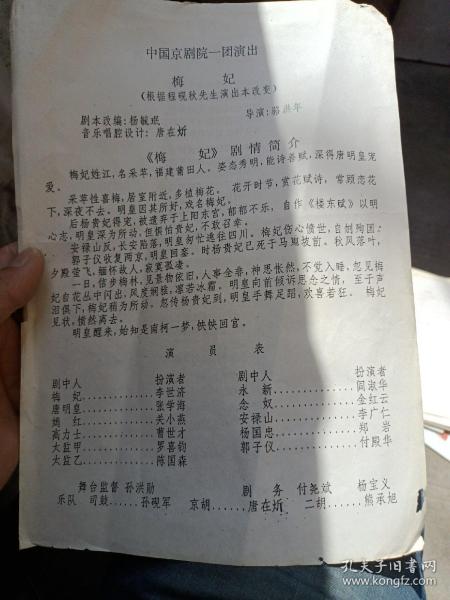 中国京剧院一团演出
梅 妃
(根据程砚秋先生演出本改变)
剧本改编：杨毓珉 导演：骆洪年
音乐唱腔设计：唐在炘
《梅 妃》剧情简介
梅妃姓江，名采苹，福建莆田人。姿态秀明，能诗善赋，深得唐明皇宠
爱。
采苹性喜梅，居室附近，多植梅花。花开时节，赏花赋诗，常顾恋花
下，深夜不去。明皇因其所好，戏名梅妃。
后杨贵妃得宠，被遗弃于上阳东宫，郁郁不乐，自作《楼东赋》以明
心志，明皇深为所动，但惧怕贵妃，不敢召幸。
安禄山反，长安陷落，明皇匆忙逃往四川。梅妃伤心愤世，自刎殉国；
郭子仪收复两京，明皇回銮。时杨贵妃已死于马嵬坡前。秋风落叶，
夕殿萤飞，缅怀故人，寂寞孤凄。
一日，信步梅林，见景物依旧，人事全非，神思怅然，不觉入睡，忽见梅
妃自花丛中闪出，风度娴雅，凛若冰霜。明皇向前倾诉思念之情，至于声
泪俱下，梅妃稍为所动。忽传杨贵妃到，明皇手舞足蹈，欢喜若狂。梅妃
见状，愤然离去。
明皇醒来，始知是南柯一梦，怏怏回宫。
演 员 表
剧中人 扮演者 剧中人 扮演者
梅 妃……李世济 永 新……阎淑华
唐明皇……张学海 念 奴……金红云
嫣 红……关小燕 安禄山……李广仁
高力士……曹世才 杨国忠……郑 岩
大监甲……罗喜钧 郭子仪……付殿华
大监乙……陈国森
舞台监督 孙洪勋 剧 务 付尧斌 杨宝义
乐队 司鼓……孙砚军 京胡……唐在炘 二胡……熊承旭
孔夫子旧书网
www.kongfz.com